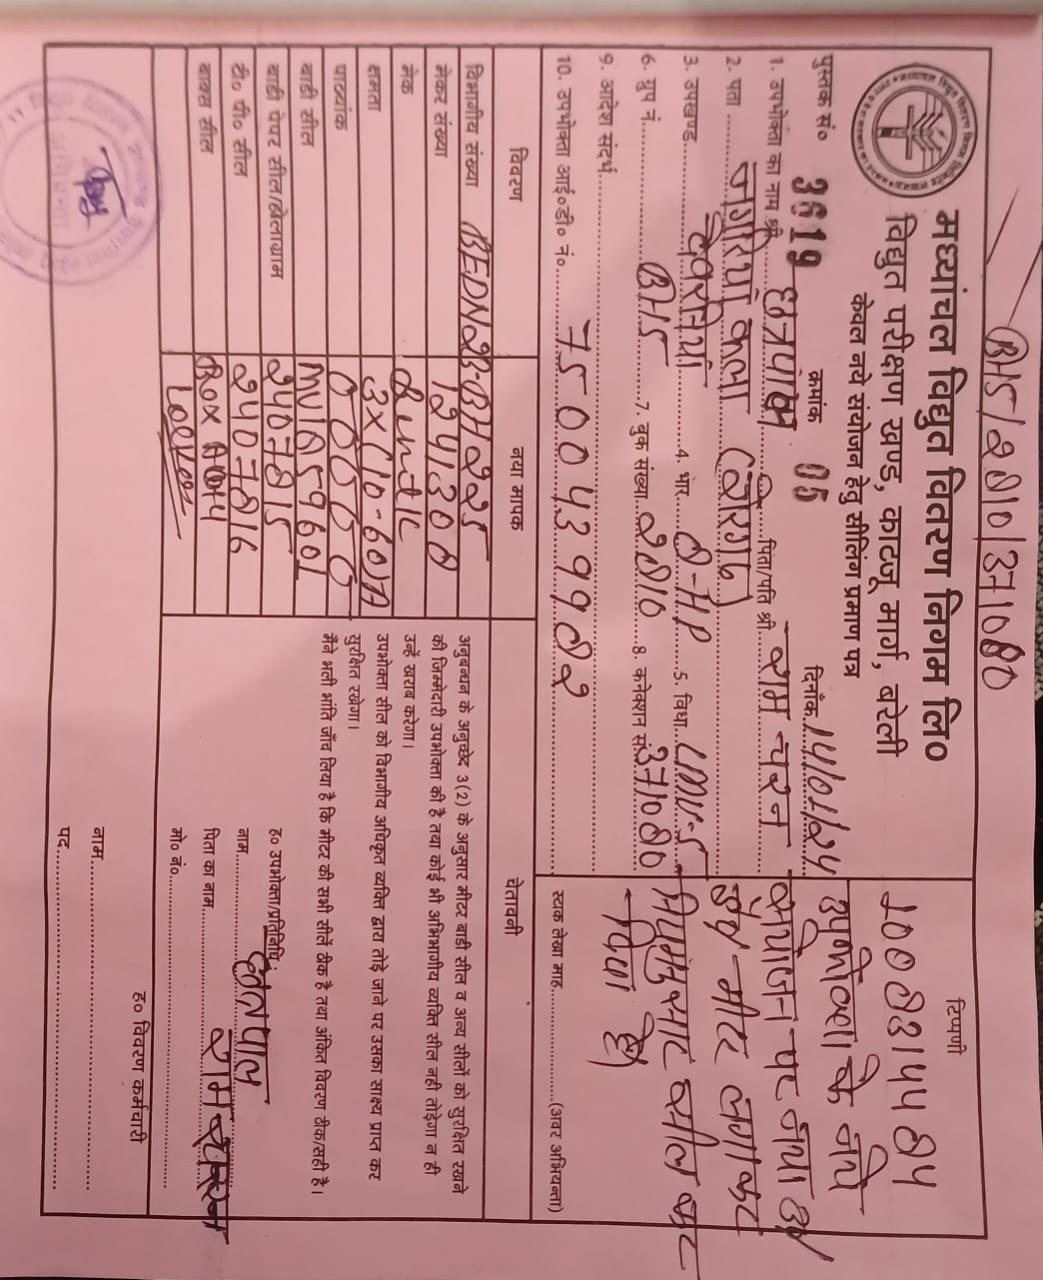 BH5/2810/371080
मध्यांचल विद्युत वितरण निगम लि०
विद्युत परीक्षण खण्ड, काटजू मार्ग, बरेली
केवल नये संयोजन हेतु सीलिंग प्रमाण पत्र
पुस्तक सं० 3619 क्रमांक 05 दिनाँक 14/01/24
1. उपभोक्ता का नाम श्री छत्रपाल पिता/पति श्री राम चरन
2. पता
3. उपखण्ड 4. भार 8-HP 5. विधा LMV-5
6. ग्रुप नं. BH5 7. बुक संख्या 2810 8. कनेक्शन सं. 371080
9. आदेश संदर्भ
10. उपभोक्ता आई०डी० नं० 7500439982
टिप्पणी
उपभोक्ता के नये
संयोजन पर नया
मीटर लगाकर
नियमानुसार सील कर
दिया है।
(अवर अभियन्ता)
विवरण नया मापक चेतावनी
विभागीय संख्या BEDN2B-BH225
मेकर संख्या
मेक
क्षमता 3X(10-60)A
पाठ्यांक
बाडी सील
बाडी पेपर सील/होलोग्राम 2407815
टी० पी० सील 2407816
बाक्स सील
अनुबन्धन के अनुच्छेद 3(2) के अनुसार मीटर बाडी सील व अन्य सीलों को सुरक्षित रखने
की जिम्मेदारी उपभोक्ता की है तथा कोई भी अभिभागीय व्यक्ति सील नही तोड़ेगा न ही
उन्हें खराब करेगा।
उपभोक्ता सील को विभागीय अधिकृत व्यक्ति द्वारा तोड़े जाने पर उसका साक्ष्य प्राप्त कर
सुरक्षित रखेगा।
मैंने भली भांति जाँच लिया है कि मीटर की सभी सीलें ठीक है तथा अंकित विवरण ठीक/सही है।
ह० उपभोक्ता/प्रतिनिधि
नाम छत्रपाल
पिता का नाम
मो० नं०
ह० विवरण कर्मचारी
नाम
पद